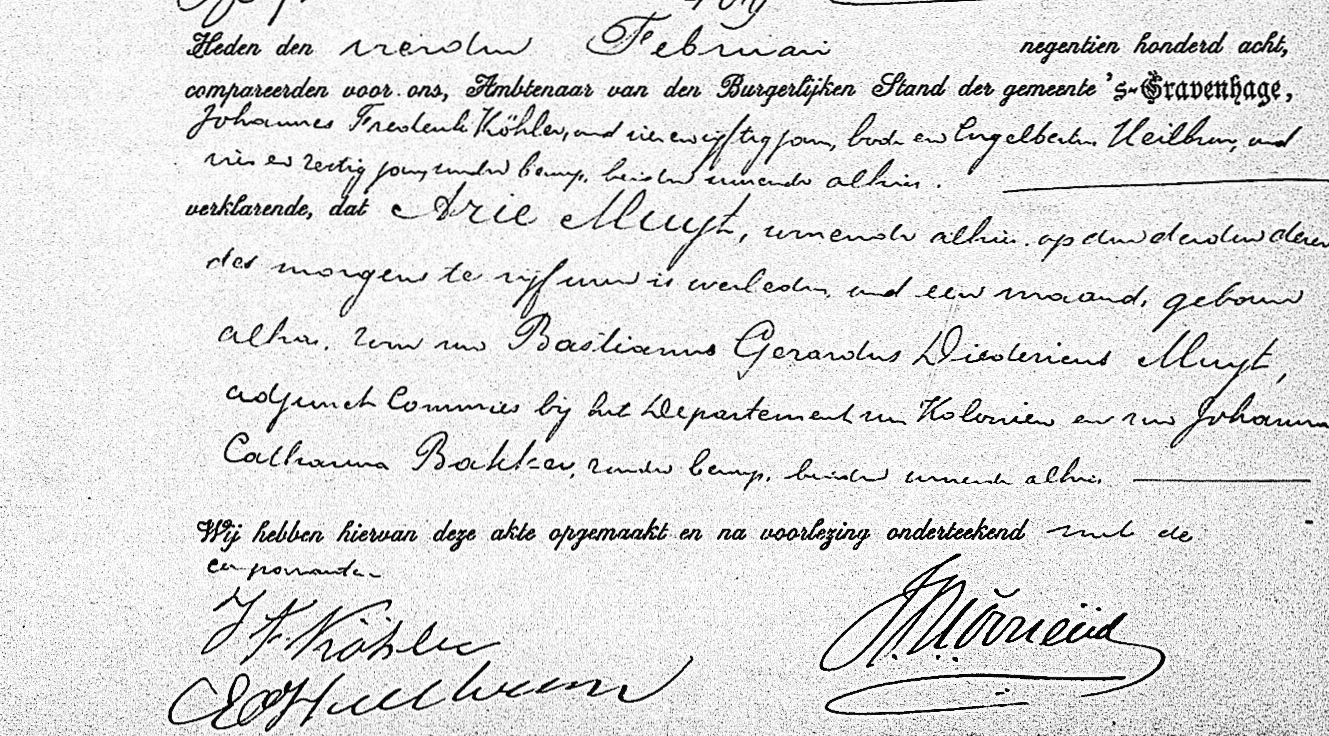 Heden den vierden Februari negentien honderd acht,
compareerden voor ons, Ambtenaar van den Burgerlijken Stand der gemeente 's-Gravenhage,
Johannes Frederik Köhler, oud vier en vijftig jaar, bode en Engelbertus Heilbron, oud
vier en zestig jaar, zonder beroep, beiden wonende alhier.
verklarende, dat Arie Muyt, wonende alhier, op den derden dezer
des morgens te vijf uren is overleden, oud een maand, geboren
alhier, zoon van Bastianus Gerardus Diedericus Muyt,
adjunct Commies bij het Departement van Koloniën en van Johanna
Catharina Bakker, zonder beroep, beiden wonende alhier.
Wij hebben hiervan deze akte opgemaakt en na voorlezing onderteekend met de
comparanten
J F Köhler